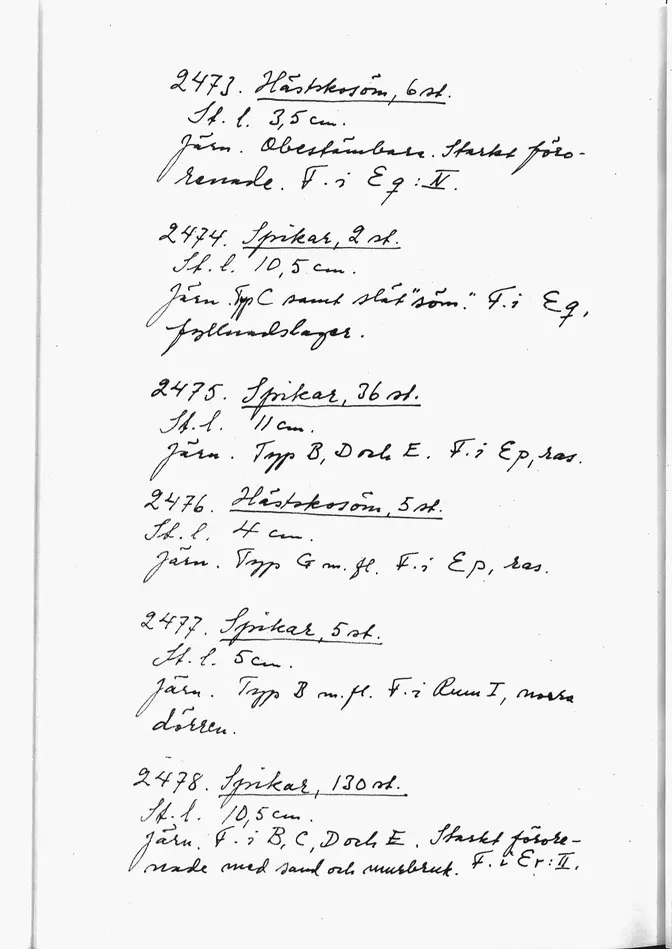 2473. Hästskosöm, 6 st.
St. l. 3,5 cm.
Järn. Obestämbara. Starkt föro-
renade. F. i Eq: IV.
2474. Spikar, 2 st.
St. l. 10,5 cm.
Järn. Typ C samt slät "söm." F. i Eq,
fyllnadslager.
2475. Spikar, 36 st.
St. l. 11 cm.
Järn. Typ B, D och E. F. i Ep, ras.
2476. Hästskosöm, 5 st.
St. l. 4 cm.
Järn. Typ G m. fl. F. i Ep, ras.
2477. Spikar, 5 st.
St. l. 5 cm.
Järn. Typ B m. fl. F. i Rum I, norra
dörren.
2478. Spikar, 130 st.
St. l. 10,5 cm.
Järn. F. i B, C, D och E. Starkt förore-
nade med sand och murbruk. F. i Er: II.